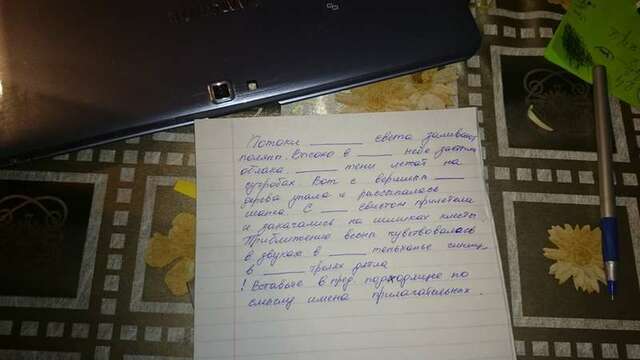 SAMSUNG
Потоки ______ света заливают
поляну. Высоко в _____ небе застыли
облака. ______ тени лежат на
сугробах. Вот с вершины _____
дерева упала и рассыпалась
шапка. С ____ свистом прилетели
и закачались на шишках клесты.
Приближение весны чувствовалось
в звуках в ______ теньканье синиц,
в ______ тролях дятла
! Вставьте в пред. подходящие по
смыслу имена прилагательных.